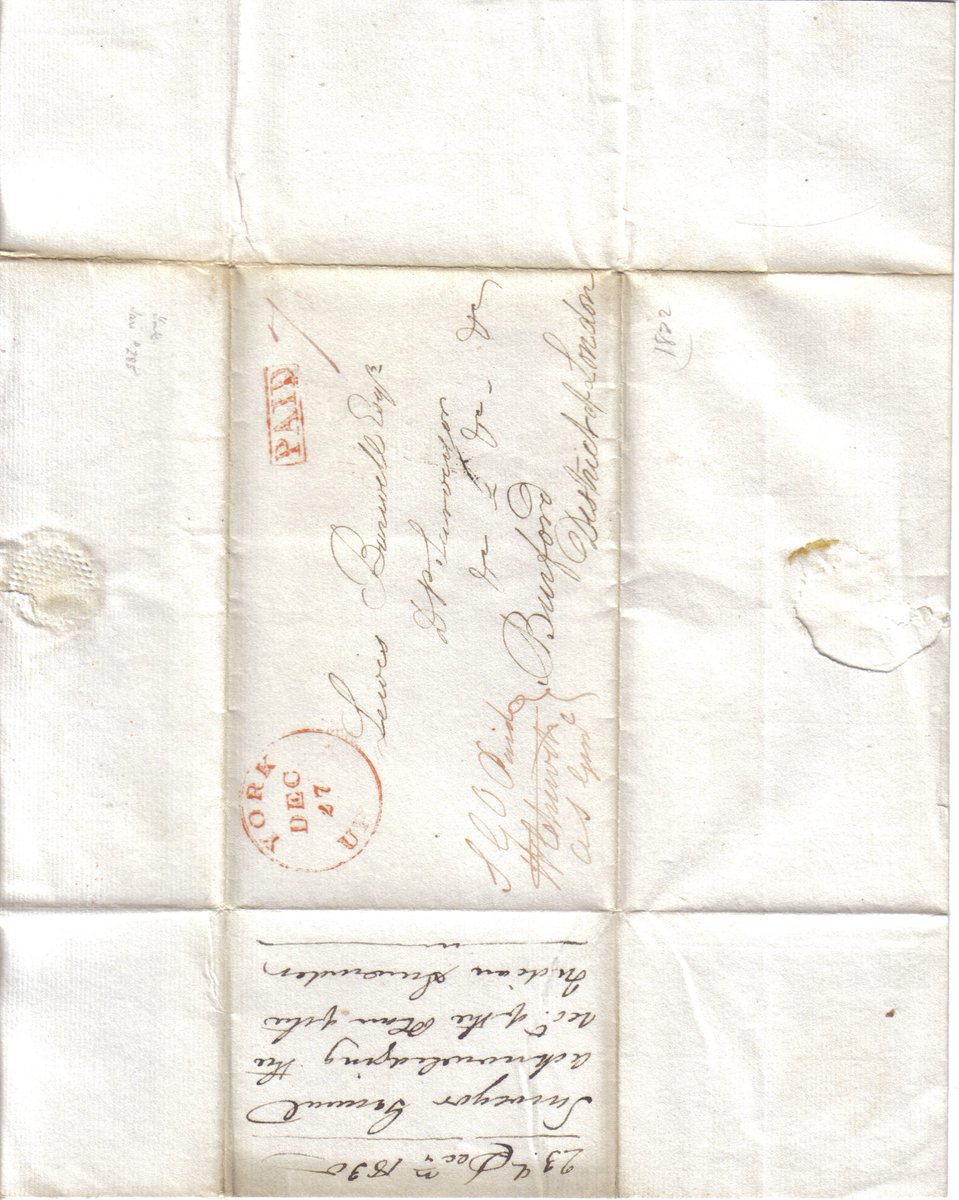 PAID
YORK
DEC
27
UC
Lewis Burwell Esqr
Dp. Surveyor
&c &c &c - &c
Burford
District of London
S G O Paid
as Genl
1822
23d Decr 1830
Surveyor General
acknowledging the
rect. of the Plan of the
Indian Surrender